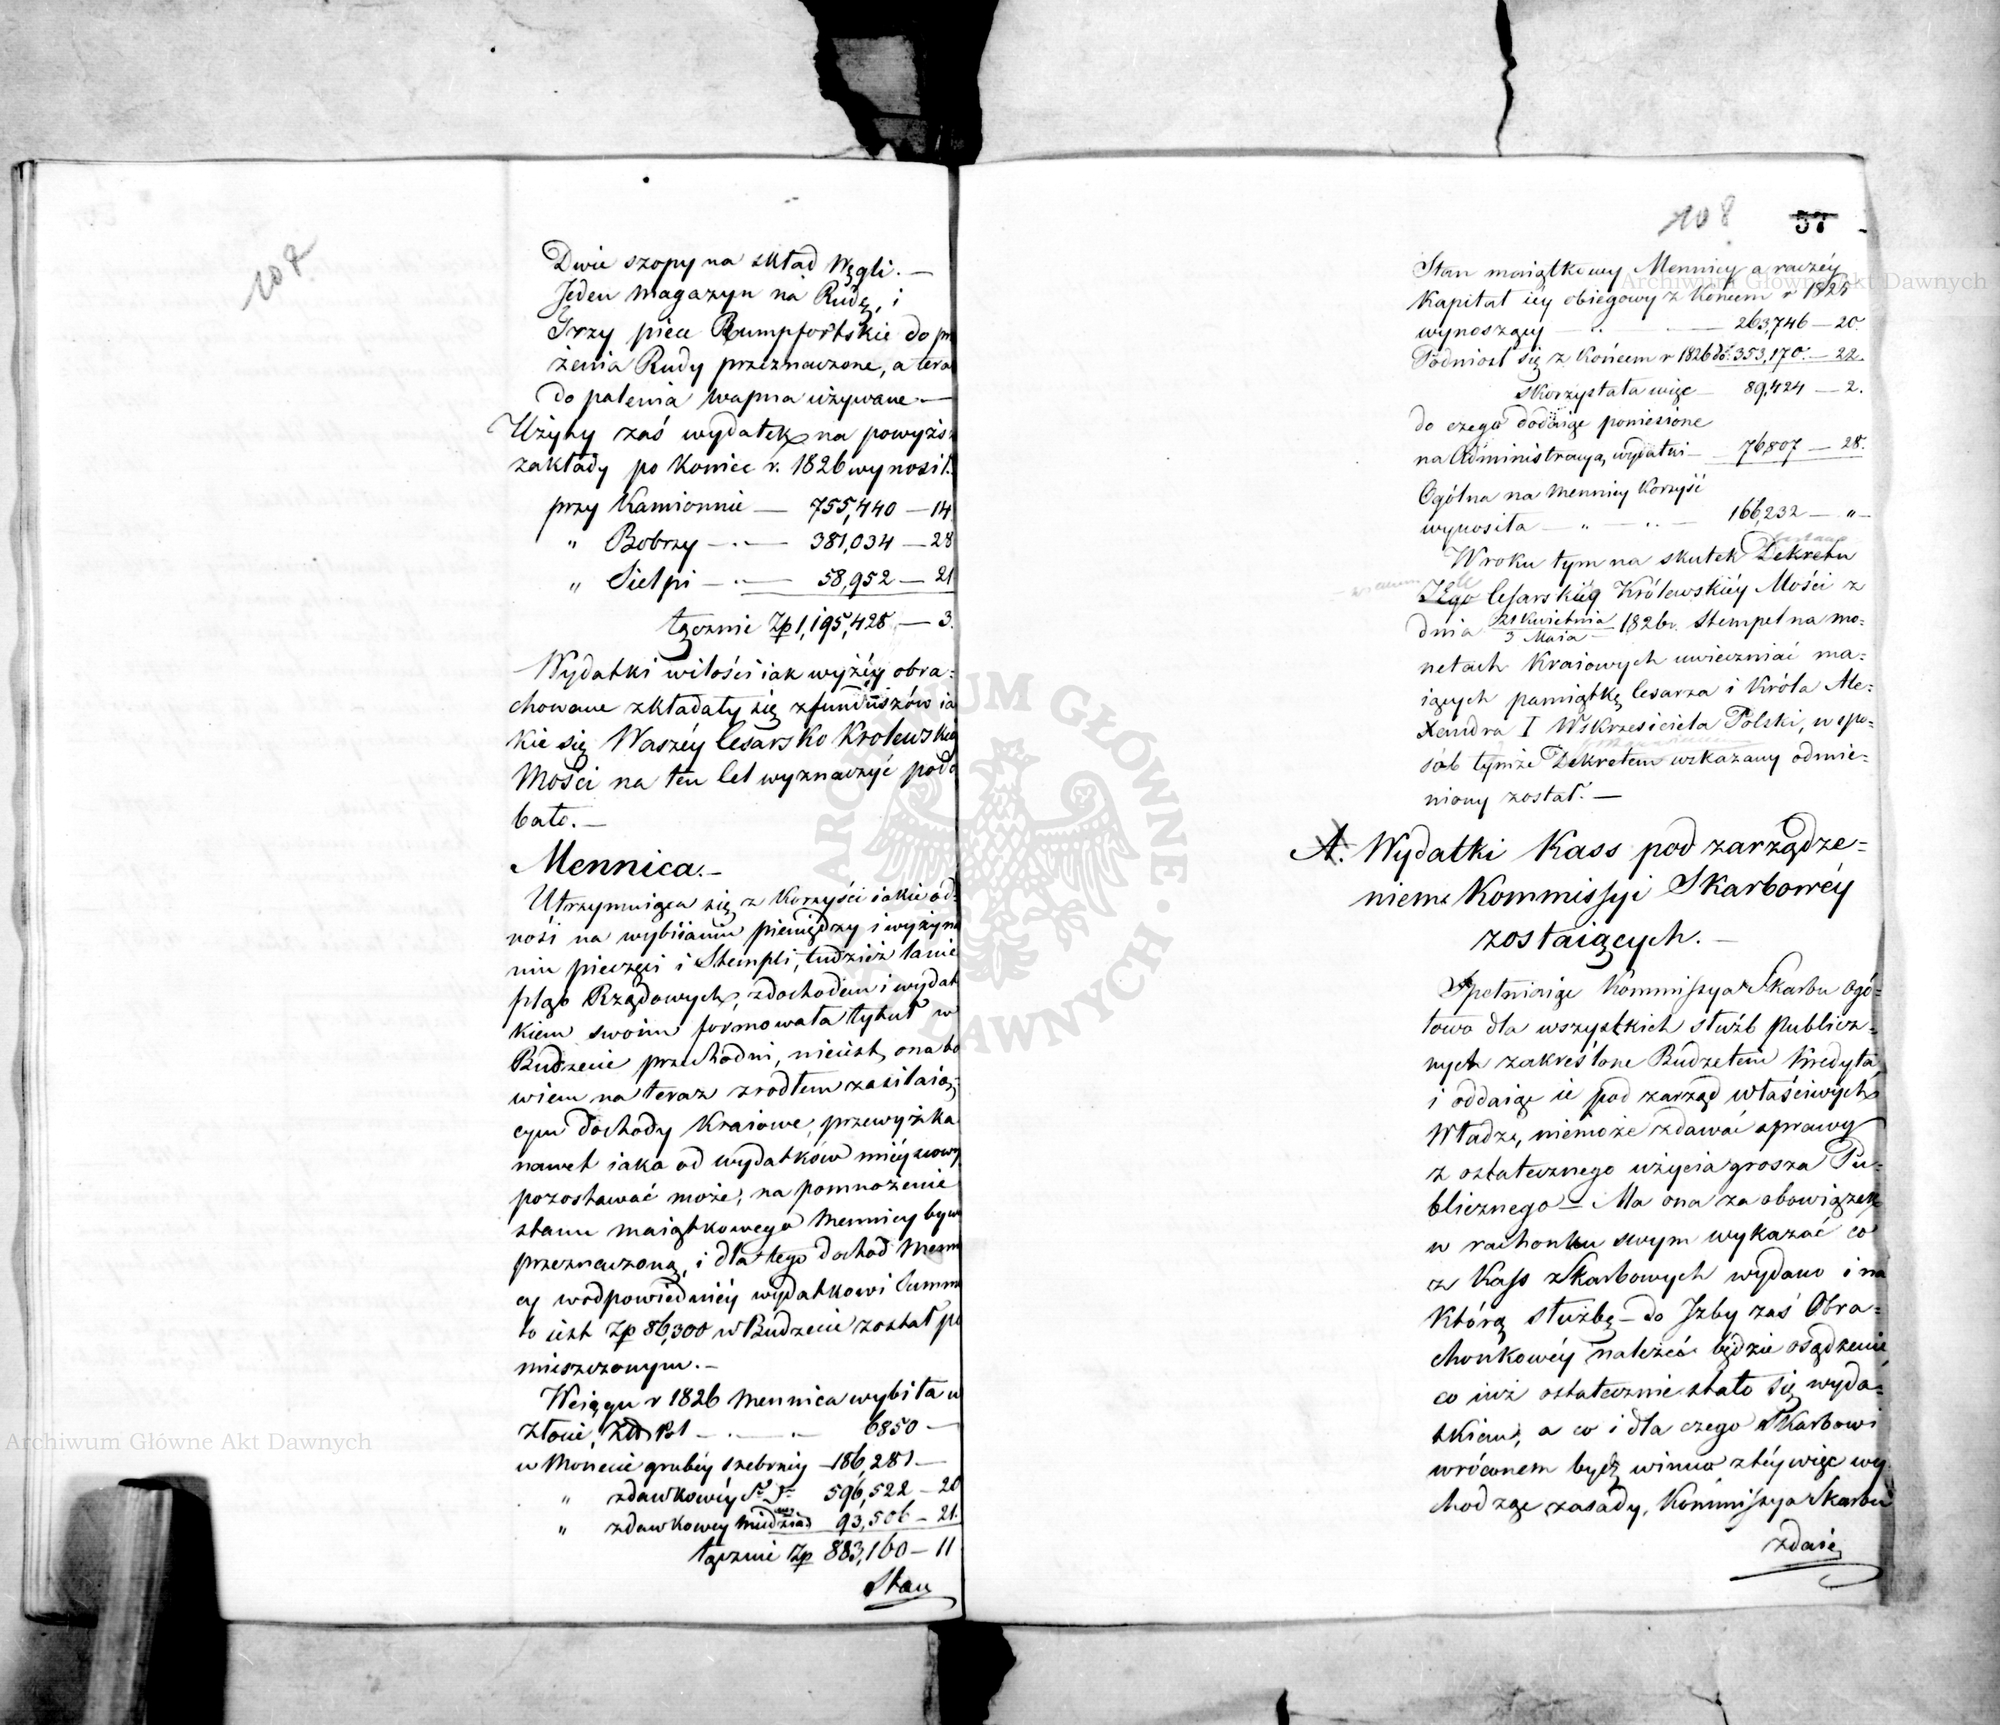 107.
Dwie szopy na skład Węgli. —
Jeden magazyn na Rudę, i
Trzy piece Rumpfortskie do pra
żenia Rudy przeznaczone, a tera
do palenia wapna używane —
Użyty zaś wydatek na powyższ
zakłady po koniec r. 1826 wynosił.
przy Kamionnie — 755,440 — 14
" Bobrzy — 381,034 — 28
" Sielpi — 58,952 — 21
łącznie Zp 1,195,428 — 3.
Wydatki wilości iak wyżéy obra-
chowane zkładały się zfunduszów ia
kie się Waszéy Cesarsko Krolewskié
Mości na ten Cel wyznaczyć podo
bało. —
Mennica. —
Utrzymuiąca się z korzyści iakie od-
nosi na wybiianiu pieniędzy i wyżyna
niu pieczęci i Stempli, tudzież
Rządowych, zdochodem i wydat
kiem swoim formowała tytuł w
Budżecie przechodni, nieiest ona bo
wiem na teraz zrodłem zasilaią-
cym dochody Kraiowe, przewyżka
nawet iaka od wydatków mieyscowy
pozostawać może, na pomnożenie
stanu maiątkowego Mennicy bywa
przeznaczoną, i dla tego dochod Menni
cy wodpowiedniéy wydatkowi Summi
to iest Zp 86,300 w Budżecie został po
mieszczonym. —
Wciągu r 1826 Mennica wybiła w
złocie, Złł Pol — 6850 —
w Monecie grubéy srebrnéy — 186,281 —
" zdawkowéy dº dº 596,522 — 20
" zdawkowey miedzianéy 93,506 — 21.
łącznie Zp 883,160 — 11
Stan
108
37
Stan maiątkowy Mennicy a raczéy
Kapitał iéy obiegowy z końcem r 1825
wynoszący — 263,746 — 20.
Podniosł się z końcem r 1826 do 353,170. — 22.
skorzystała więc — 89,424 — 2.
do czego dodaiąc poniesione
na Administracyą wydatki — 76,807 — 28.
Ogólna na Mennicy korzyść
wynosiła — " — 166,232 — " —
W roku tym na skutek Dekretu
JEgo Cesarskiéy Królewskiéy Mości z
dnia 21 Kwietnia / 3 Maia 1826 r. Stempel na mo-
netach Kraiowych uwieczniać ma-
iących pamiątkę Cesarza i Króla Ale-
xandra I Wskrzesiciela Polski, w spo-
sób tymże Dekretem wskazany odmie-
niony został. —
A. Wydatki Kass pod zarządze-
niem Kommissyi Skarbowéy
zostaiących. —
Spełniaiąc Kommissya Skarbu ogó-
łowo dla wszystkich służb Publicz-
nych zakreślone Budżetem kredyta
i oddaiąc ie pod zarząd właściwych
Władz, niemoże zdawać sprawy
z ostatecznego użycia grosza Pu-
blicznego — Ma ona za obowiązek
w rachonku swym wykazać co
z Kass Skarbowych wydano i na
którą służbę — do Izby zaś Obra-
chonkowéy należeć będzie osądzenie
co iuż ostatecznie stało się wyda-
tkiem, a co i dla czego Skarbowi
wróconem bydź winno z téy więc wy
chodząc zasady, Kommissya Skarbu
zdaie
ARCHIWUM GŁÓWNE AKT DAWNYCH
Archiwum Główne Akt Dawnych
Archiwum Główne Akt Dawnych